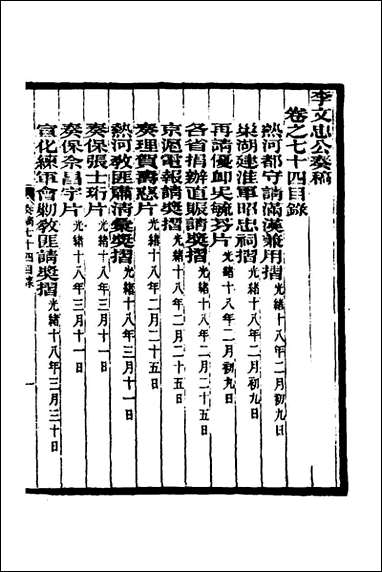 李文忠公奏稿
卷之七十四目錄
熱河都守請滿漢兼用摺光緒十八年二月初九日
巢湖建淮軍昭忠祠摺光緒十八年二月初九日
再請優卹吳毓芬片光緒十八年二月初九日
各省捐辦直賑請獎摺光緒十八年二月二十五日
京滬電報請獎摺光緒十八年二月二十五日
奏理賀壽慈片光緒十八年二月二十五日
熱河教匪肅清彙獎摺光緒十八年三月十一日
奏保張士珩片光緒十八年三月十一日
奏保佘昌宇片光緒十八年三月十一日
宣化練軍會剿教匪請獎摺光緒十八年三月三十日
奏稿七十四目錄
一